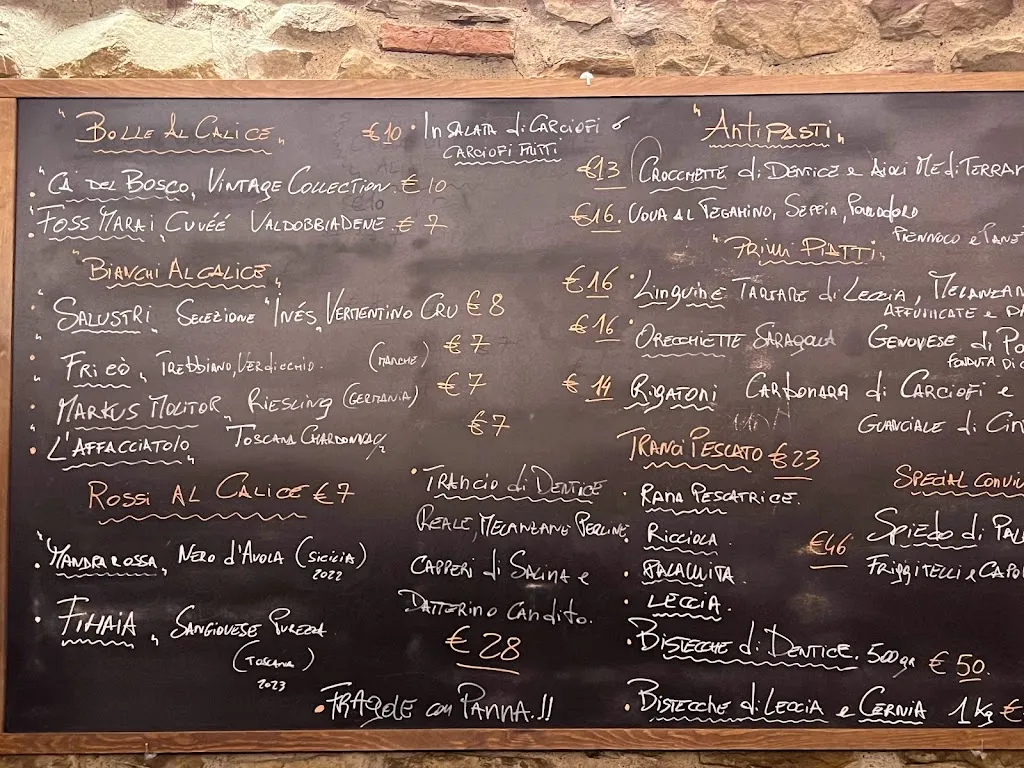 "Bolle Al Calice"
Ca' del Bosco, Vintage Collection. € 10
Foss Marai Cuvéé Valdobbiadene. € 7
"Bianchi Al Calice"
Salustri Selezione "Inés" Vermentino Cru € 8
Fri eò, Trebbiano, Verdicchio. (Marche) € 7
Markus Molitor, Riesling (Germania) € 7
L'Affacciatoio, Toscana Chardonnay € 7
Rossi Al Calice € 7
Mandrarossa, Nero d'Avola (Sicilia)
2022
Fihaia, Sangiovese Purezza
(Toscana)
2023
€10 • Insalata di Carciofi o
Carciofi Fritti
• Trancio di Dentice
Reale, Melanzane Perline,
Capperi di Salina e
Datterino Candito.
€ 28
• Fragole con Panna.!!
"Antipasti"
€13 Crocchette di Dentice e Aioli Mediterran
€16. Uova al Tegamino, Seppia, Pomodoro
Piennolo e Pane
"Primi Piatti"
€ 16 • Linguine Tartare di Leccia, Melanzan
Affumicate e
€ 16 • Orecchiette Saragolla Genovese di Po
Fonduta di
€ 14 • Rigatoni Carbonara di Carciofi e
Guanciale di Cin
Tranci Pescato € 23
• Rana Pescatrice.
• Ricciola.
• Palamita.
• Leccia.
• Bistecche di Dentice. 500gr € 50.
• Bistecche di Leccia e Cernia 1 Kg €
Special Convivi
€46 Spiedo di Pal
Friggitelli e Capo